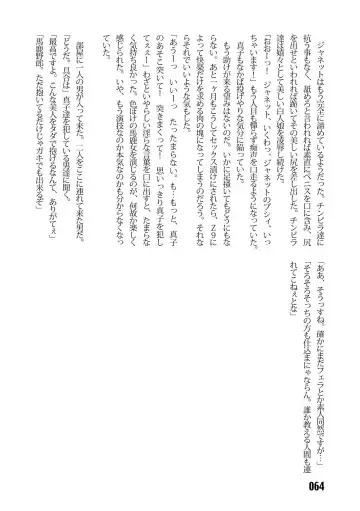 ジャネットはもう完全に諦めているようだった。チンピラ達に
抗う事もなく、舐めろと言われれば素直にペニスを口に含み、尻
を出せといわれれば跪いてその美しい尻を差し出した。チンピラ
達は嬉々として美しい白人娘を凌辱し続けた。
「おおーっ！　ジャネット、いくわっ。ジャネットのプシイ、いっ
ちゃいます！」もう人目も憚らず痴声を口走るようになっていた。
　真子もなかば投げやりな気分に陥っていた。
　もう助けが来る望みはないのだ。いかに足掻いてもどうにもな
らない。あと一ヶ月もこうしてセックス漬けにされたら、Ｚ９に
よって快楽だけを求める肉の塊になってしまうのだろう。それな
らそれでいいような気もした。
「あうーっ　いいーっ　たったまらない。も…もっと、真子
のあそこ突いて！　突きまくって！　思いっきり真子を犯し
てぇぇー」わざといやらしい淫らな言葉を口に出すと、たまらな
く気持ち良かった。色ぼけの馬鹿女を演じるのが、何故か楽しく
感じられた。いや、もう演技なのか本気なのかも分からなくなっ
ていた。

　部屋に一人の男が入って来た。二人をここに連れて来た男だ。
「どうだ。具合は」真子達を犯している男達に聞く。
「最高ですよ。こんな美人をタダで抱けるなんて、ありがてぇ」
「馬鹿野郎。ただ抱いてるだけじゃガキでも出来るぞ」
「ああ、そうっすね。確かにまだフェラとか素人同然ですが…」
「そろそろそっちの方も仕込まにゃならん。誰か教える人間も連
れてこねぇとな」
064